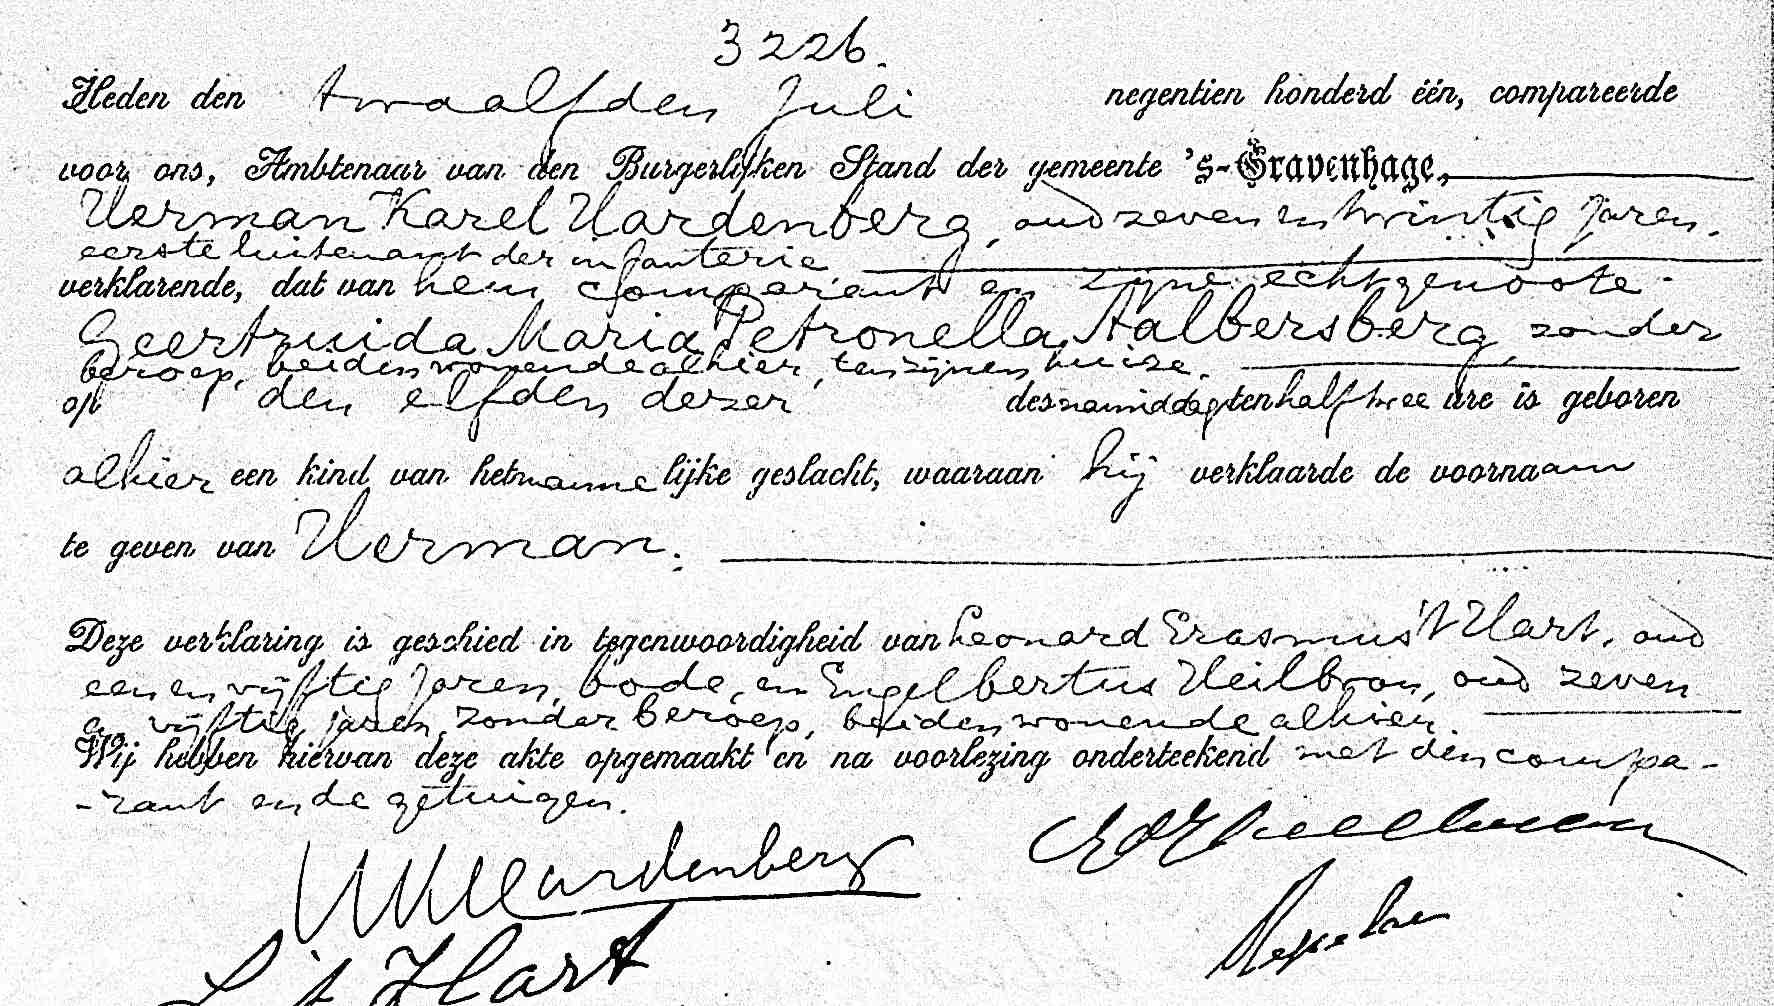 3226.
Heden den twaalfden Juli negentien honderd één, compareerde
voor ons, Ambtenaar van den Burgerlijken Stand der gemeente 's-Gravenhage,
Herman Karel Hardenberg, oud zeven en twintig jaren,
eerste luitenant der infanterie,
verklarende, dat van hem comparant en zijne echtgenoote
Geertruida Maria Petronella Aalbersberg, zonder
beroep, beiden wonende alhier, ten zijnen huize,
op den elfden dezer des namiddag ten half twee ure is geboren
alhier een kind van het mannelijke geslacht, waaraan hij verklaarde de voornaam
te geven van Herman.
Deze verklaring is geschied in tegenwoordigheid van Leonard Erasmus 't Hart, oud
een en vijftig jaren, bode, en Engelbertus Heilbron, oud zeven
en vijftig jaren, zonder beroep, beiden wonende alhier.
Wij hebben hiervan deze akte opgemaakt en na voorlezing onderteekend met den compa-
-rant en de getuigen.
HKHardenberg
L 't Hart